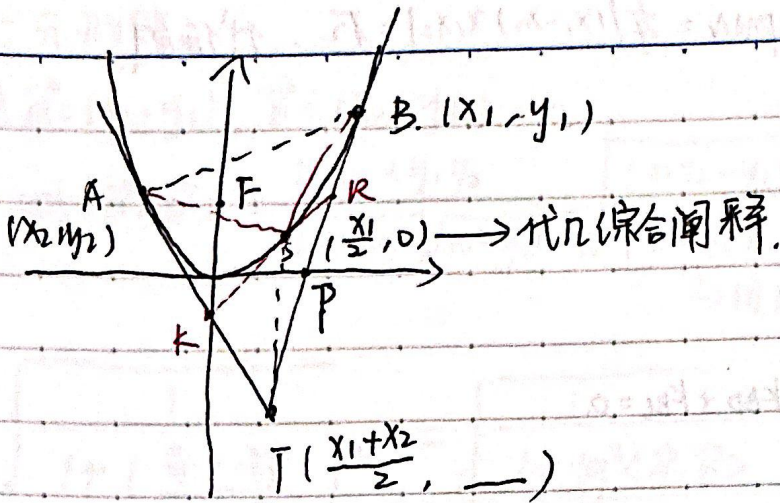 B. (x₁, y₁)
A
F
R
(x₂, y₂)
S
(x₁/2, 0) → 代几综合阐释.
P
K
T (x₁+x₂/2, __)